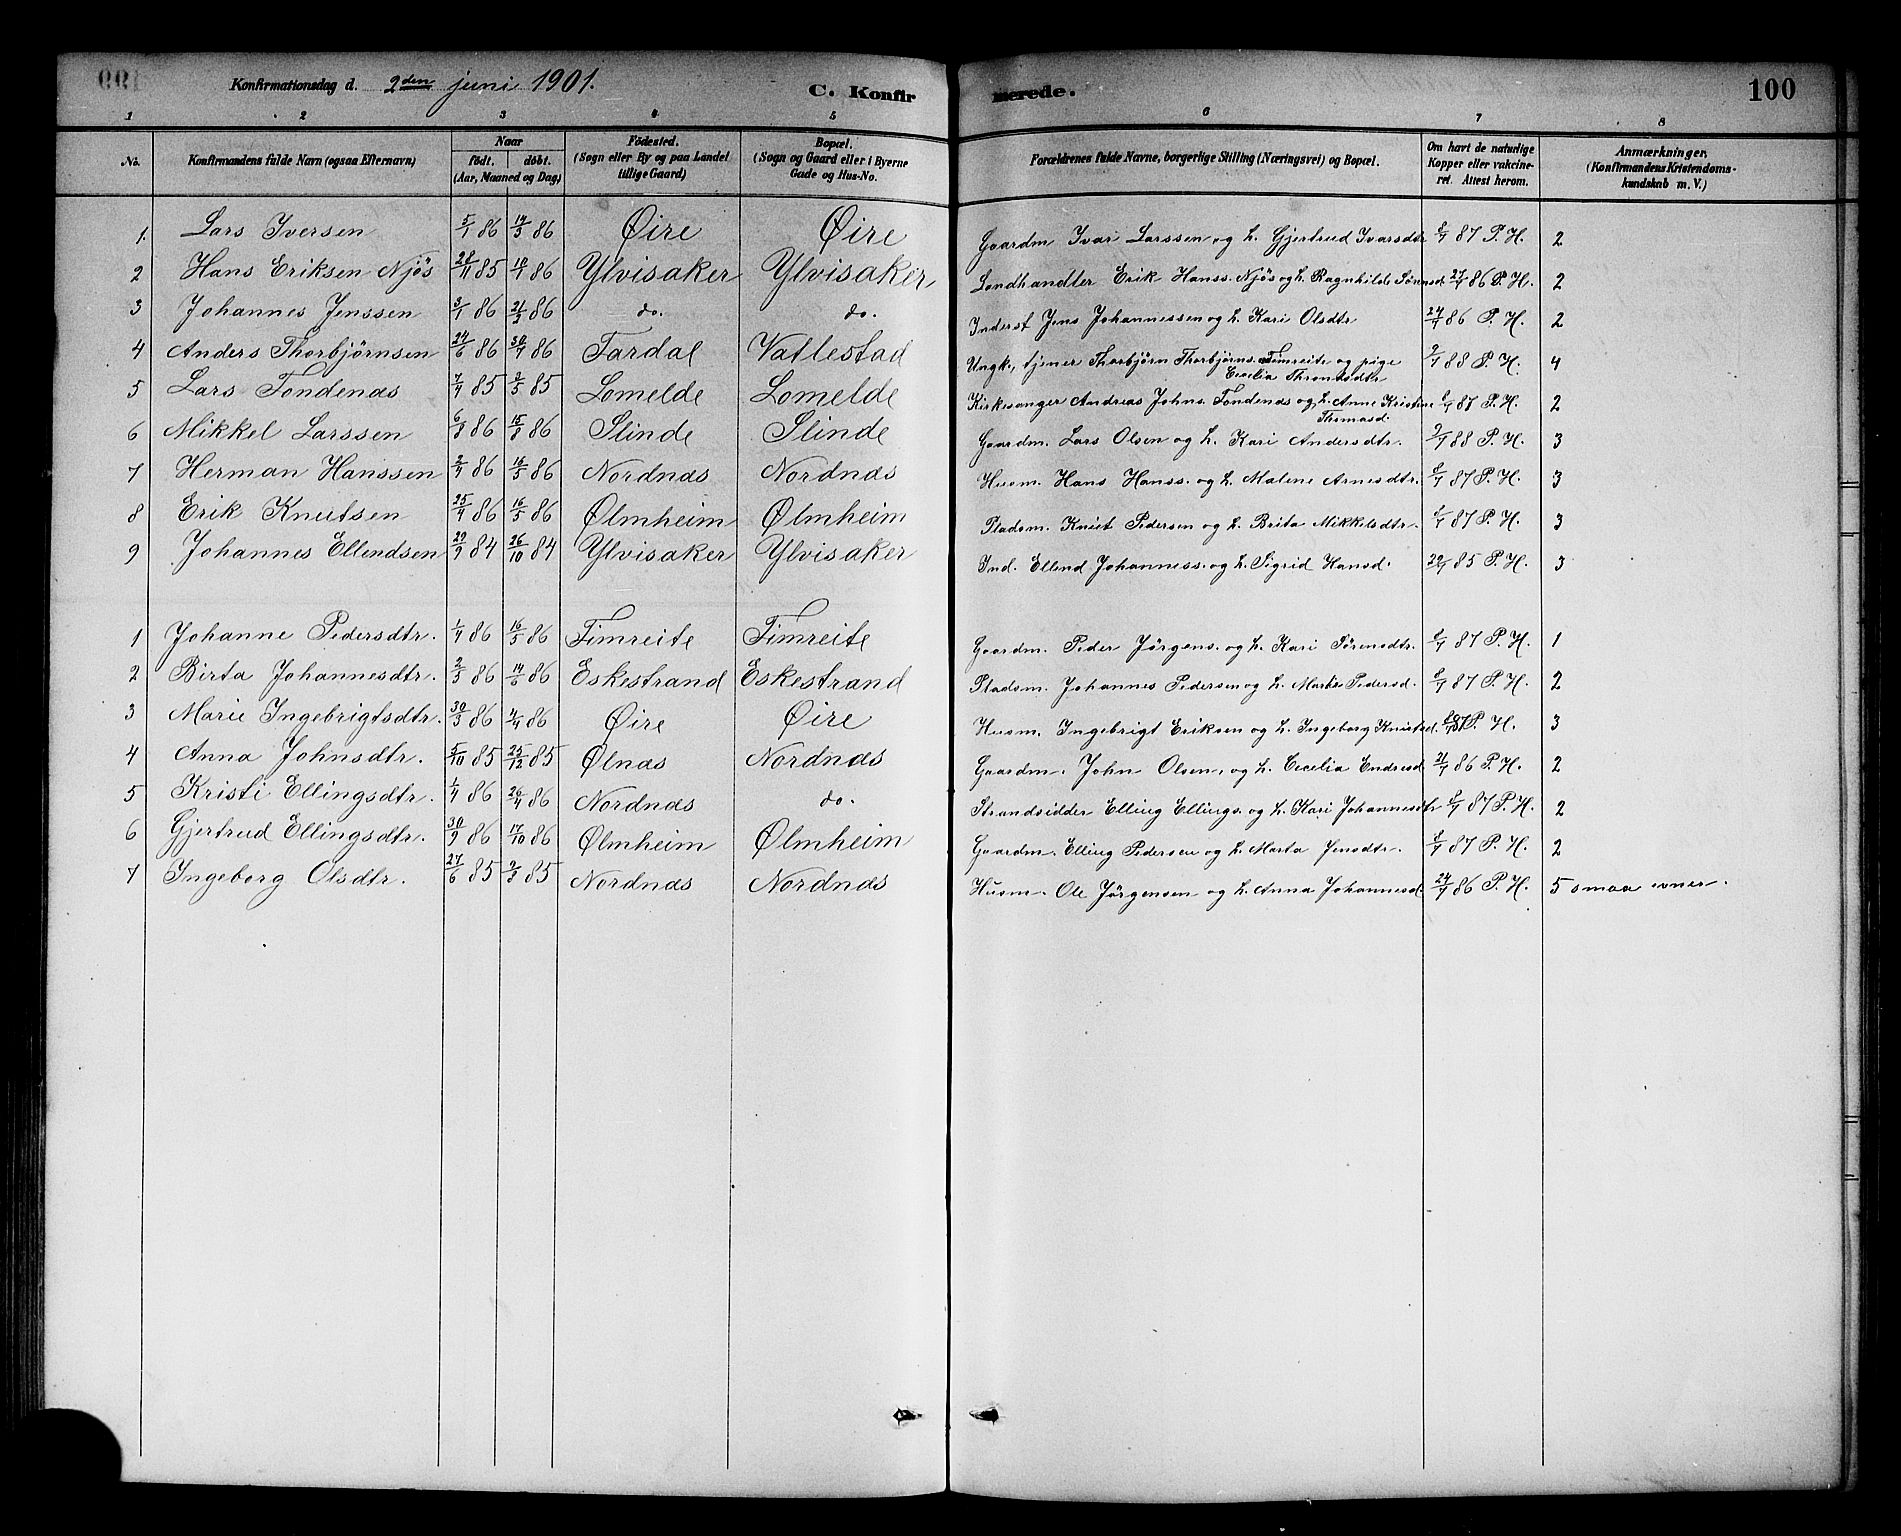 Konfirmationsdag d. 2den juni 1901. C. Konfirmerede. 100
1 2 3 4 5 6 7 8
No. Konfirmandens fulde Navn (ogsaa Efternavn) Naar født. døbt. (Aar, Maaned og Dag) Fødested. (Sogn eller By og paa Landet tillige Gaard) Bopæl. (Sogn og Gaard eller i Byerne Gade og Hus-No. Forældrenes fulde Navne, borgerlige Stilling (Næringsvei) og Bopæl. Om havt de naturlige Kopper eller vakcineret. Attest herom. Anmærkninger, (Konfirmandens Kristendomskundskab m. V.)
1. Lars Iversen 5/1 86 14/3 86 Øire Øire Gaardm Ivar Larssen og h. Gjertrud Ivarsdtr 8/7 87 P. H. 2
2 Hans Eriksen Njøs 28/11 85 18/1 86 Ylvisaker Ylvisaker Landhandler Erik Hanss. Njøs og h. Ragnhilde Sørensd. 27/7 86 P. H. 2
3 Johannes Jenssen 3/1 86 21/3 86 do. do. Inderst Jens Johannessen og h. Kari Olsdtr 27/7 86 P. H. 2
4 Anders Thorbjørnsen 24/6 86 30/7 86 Tardal Vallestad Ungk., tjener Thorbjørn Thorbjørns. Timreite og pige Cecilia Thronsdtr 9/7 88 P. H. 4
5 Lars Tondenas 7/4 85 3/5 85 Lomelde Lomelde Kirkesanger Andreas Johns. Tondenas og h. Anne Kristine Thomasd. 8/7 87 P. H. 2
6 Mikkel Larssen 6/8 86 15/8 86 Slinde Slinde Gaardm. Lars Olsen og h. Kari Andersdtr. 9/7 88 P. H. 3
7 Herman Hanssen 2/4 86 16/5 86 Nordnas Nordnas Husm. Hans Hanss. og h. Malene Arnesdtr. 8/7 87 P. H. 3
8 Erik Knutsen 25/4 86 16/5 86 Ølmheim Ølmheim Pladsm. Knut Pedersen og h. Brita Mikkelsdtr. 8/7 87 P. H. 3
9 Johannes Ellendsen 29/9 84 26/10 84 Ylvisaker Ylvisaker Ind. Ellend Johanness. og h. Sigrid Hansd. 22/7 85 P. H. 3
1 Johanne Pedersdtr. 1/4 86 16/5 86 Timreite Timreite Gaardm. Peder Jørgens. og h. Kari Sørensdtr. 8/7 87 P. H. 1
2 Birta Johannesdtr. 2/5 86 14/6 86 Eskestrand Eskestrand Pladsm. Johannes Pedersen og h. Marta Pedersd. 8/7 87 P. H. 2
3 Marie Ingebrigtsdtr. 30/3 86 4/4 86 Øire Øire Husm. Ingebrigt Eriksen og h. Ingeborg Knutsd. 87 P. H. 3
4 Anna Johnsdtr. 5/10 85 25/12 85 Ølnas Nordnas Gaardm. John Olsen, og h. Cecelia Endresd 21/7 86 P. H. 2
5 Kristi Ellingsdtr. 1/4 86 26/4 86 Nordnas do. Strandsidder Elling Ellings. og h. Kari Johannesdtr 8/7 87 P. H. 2
6 Gjertrud Ellingsdtr. 30/9 86 17/10 86 Ølmheim Ølmheim Gaardm. Elling Pedersen og h. Marta Jensdtr. 8/7 87 P. H. 2
7 Ingeborg Olsdtr. 27/6 85 9/8 85 Nordnas Nordnas Husm. Ole Jørgensen og h. Anna Johannesd. 27/7 86 P. H. 5 smaa evner.